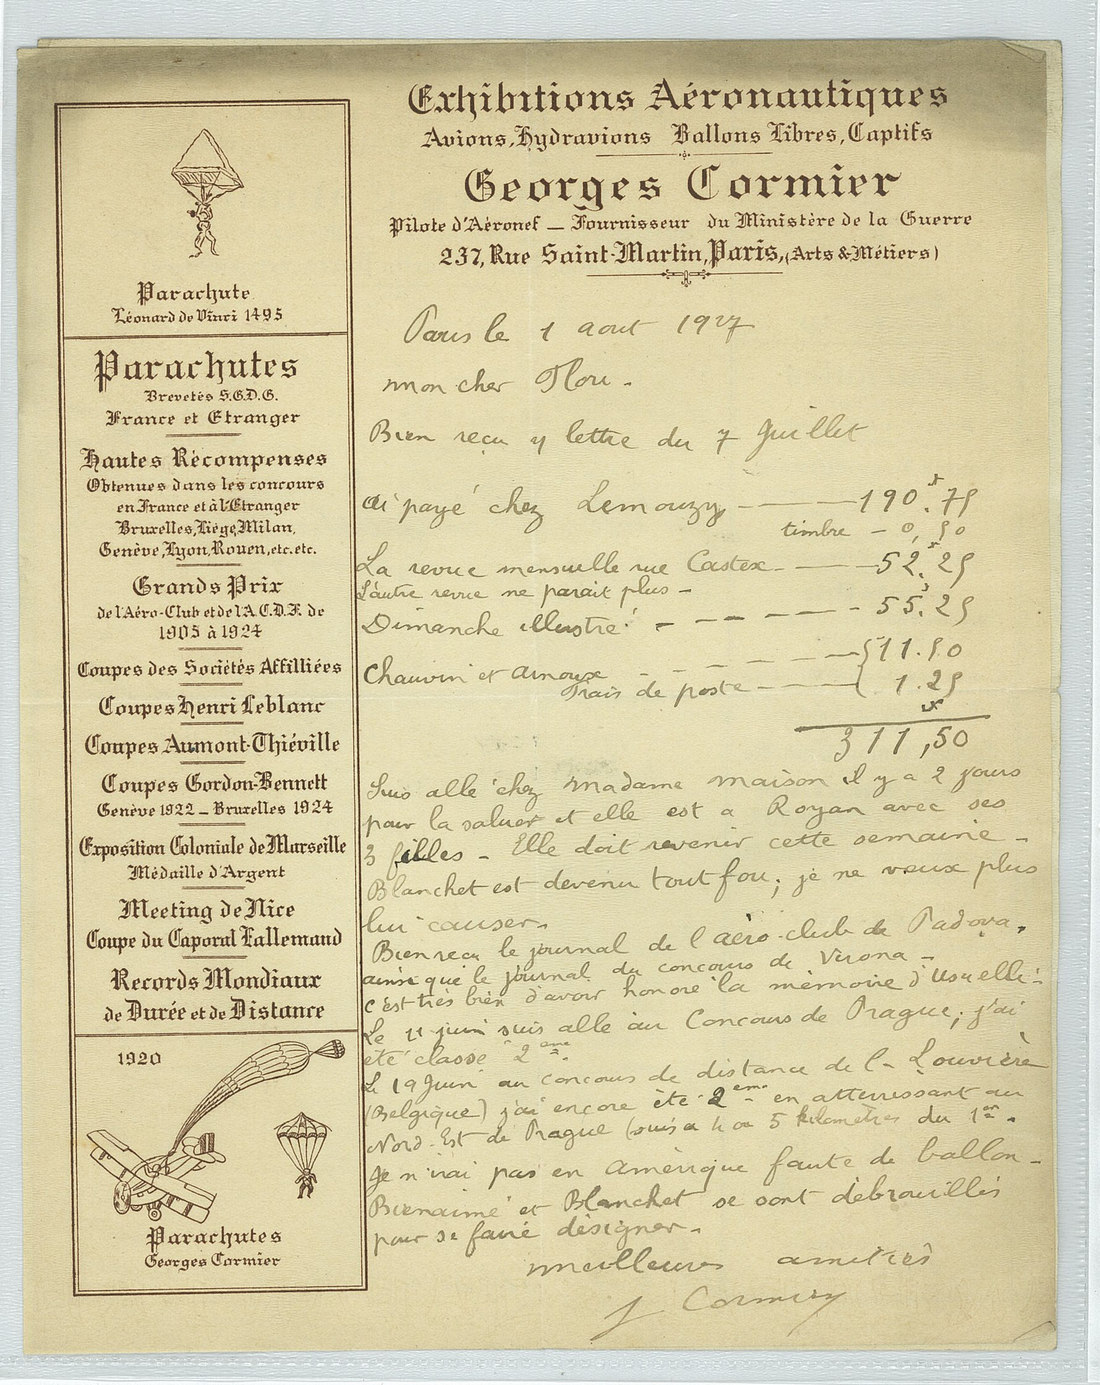 Exhibitions Aéronautiques
Avions, Hydravions Ballons Libres, Captifs
Georges Cormier
Pilote d'Aéronef — Fournisseur du Ministère de la Guerre
237, Rue Saint-Martin, Paris, (Arts & Métiers)
Parachute
Léonard de Vinci 1495
Parachutes
Brevetés S.G.D.G.
France et Etranger
Hautes Récompenses
Obtenues dans les concours
en France et à l'Etranger
Bruxelles, Liège, Milan,
Genève, Lyon, Rouen, etc. etc.
Grands Prix
de l'Aéro-Club et de l'A.C.D.F. de
1905 à 1924
Coupes des Sociétés Affilliées
Coupes Henri Leblanc
Coupes Aumont-Thiéville
Coupes Gordon-Bennett
Genève 1922 — Bruxelles 1924
Exposition Coloniale de Marseille
Médaille d'Argent
Meeting de Nice
Coupe du Caporal Lallemand
Records Mondiaux
de Durée et de Distance
1920
Parachutes
Georges Cormier
Paris le 1 aout 1927
mon cher
Bien reçu lettre du 7 Juillet
ai payé chez Lemouzy — 190.75
timbre — 0,50
La revue mensuelle rue Castex — 52.25
L'autre revue ne parait plus —
Dimanche illustré — 55.25
Chauvin et Arnoux — 11.50
Frais de poste — 1.25
311,50
Suis allé chez madame maison il y a 2 jours
pour la saluer et elle est a Royan avec ses
3 filles — Elle doit revenir cette semaine —
Blanchet est devenu tout fou; je ne veux plus
lui causer.
Bien reçu le journal de l'aéro-club de Padova,
ainsi que le journal du concours de Verona —
c'est très bien d'avoir honoré la mémoire d'Usuelli.
Le 11 juin suis allé au Concours de Prague; j'ai
été classé 2eme.
Le 19 Juin au concours de distance de la Louvière
(Belgique) j'ai encore été 2eme en atterrissant au
Nord-Est de Prague 4 ou 5 kilometres du 1er.
Je n'irai pas en Amèrique faute de ballon —
Bienaimé et Blanchet se sont débrouillés
pour se faire désigner.
meilleures amitiés
Cormier